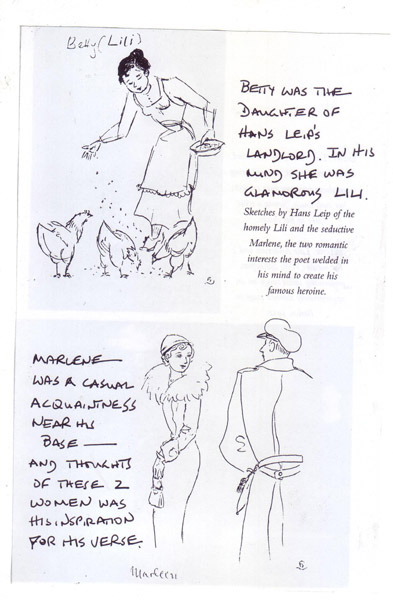 Betty (Lili)
BETTY WAS THE
DAUGHTER OF
HANS LEIP'S
LANDLORD. IN HIS
MIND SHE WAS
GLAMOROUS LILI.
Sketches by Hans Leip of the
homely Lili and the seductive
Marlene, the two romantic
interests the poet welded in
his mind to create his
famous heroine.
MARLENE
WAS A CASUAL
ACQUAINTNESS
NEAR HIS
BASE —
AND THOUGHTS
OF THESE 2
WOMEN WAS
HIS INSPIRATION
FOR HIS VERSE.
Marleen